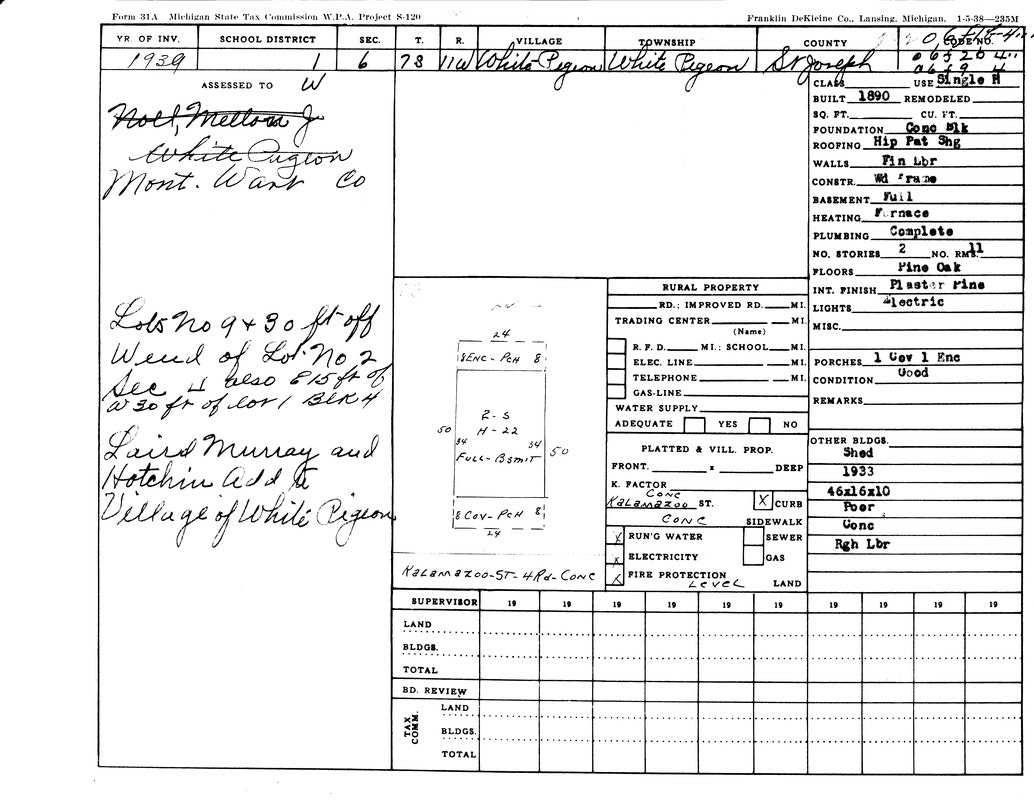 Form 31A Michigan State Tax Commission W.P.A. Project S-120
Franklin DeKleine Co., Lansing, Michigan. 1-5-38—235M
YR. OF INV. SCHOOL DISTRICT SEC. T. R. VILLAGE TOWNSHIP COUNTY CODE NO.
1939 1 6 7S 11W White Pigeon White Pigeon St Joseph
ASSESSED TO W
Noel, Mellow Jr
White Pigeon
Mont. Ward Co
Lots No 9 & 30 ft off
W end of Lot No 2
Sec 4 also E 15 ft of
W 30 ft of lot 1 BLK 4
Laird Murray and
Hotchin Add to
Village of White Pigeon
24
8 ENC-PCH 8
2-S
H-22
50 34 34 50
FULL-BSMIT
8 COV-PCH 8
24
KALAMAZOO-ST-4Rd-CONC
RURAL PROPERTY
RD.; IMPROVED RD. MI.
TRADING CENTER MI.
(Name)
R. F. D. MI.; SCHOOL MI.
ELEC. LINE MI.
TELEPHONE MI.
GAS-LINE
WATER SUPPLY
ADEQUATE YES NO
PLATTED & VILL. PROP.
FRONT. x DEEP
K. FACTOR
CONC
KALAMAZOO ST. X CURB
CONC SIDEWALK
X RUN'G WATER SEWER
X ELECTRICITY GAS
X FIRE PROTECTION
LEVEL LAND
CLASS USE Single H
BUILT 1890 REMODELED
SQ. FT. CU. FT.
FOUNDATION Conc Blk
ROOFING Hip Pat Shg
WALLS Fin Lbr
CONSTR. Wd frame
BASEMENT Full
HEATING Furnace
PLUMBING Complete
NO. STORIES 2 NO. RMS. 11
FLOORS Pine Oak
INT. FINISH Plaster Pine
LIGHTS Electric
MISC.
PORCHES 1 Cov 1 Enc
CONDITION Good
REMARKS
OTHER BLDGS.
Shed
1933
46x16x10
Poor
Conc
Rgh Lbr
SUPERVISOR 19 19 19 19 19 19 19 19 19
LAND
BLDGS.
TOTAL
BD. REVIEW
TAX COMM.
LAND
BLDGS.
TOTAL